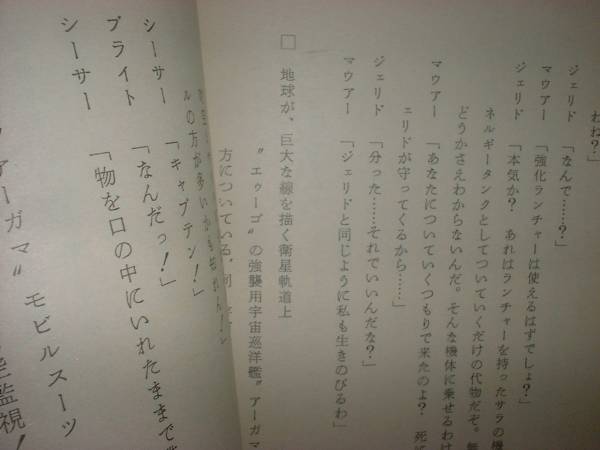 わね?」
ジェリド「なんで……?」
マウアー「強化ランチャーは使えるはずでしょ?」
ジェリド「本気か? あれはランチャーを持ったサラの機
ネルギータンクとしてついていくだけの代物だぞ。無
どうかさえわからないんだ。そんな機体に乗せるわけ
マウアー「あなたについていくつもりで来たのよ? 死
ェリドが守ってくるから……」
ジェリド「分った……それでいいんだな?」
マウアー「ジェリドと同じように私も生きのびるわ」
□ 地球が、巨大な線を描く衛星軌道上
〝エゥーゴ〟の強襲用宇宙巡洋艦〝アーガマ
方についている。
ルの方が多いかも知れん!」
シーサー「キャプテン!」
ブライト「なんだっ!」
シーサー「物を口の中にいれたままで
〝アーガマ〟モビルスーツ
監視!